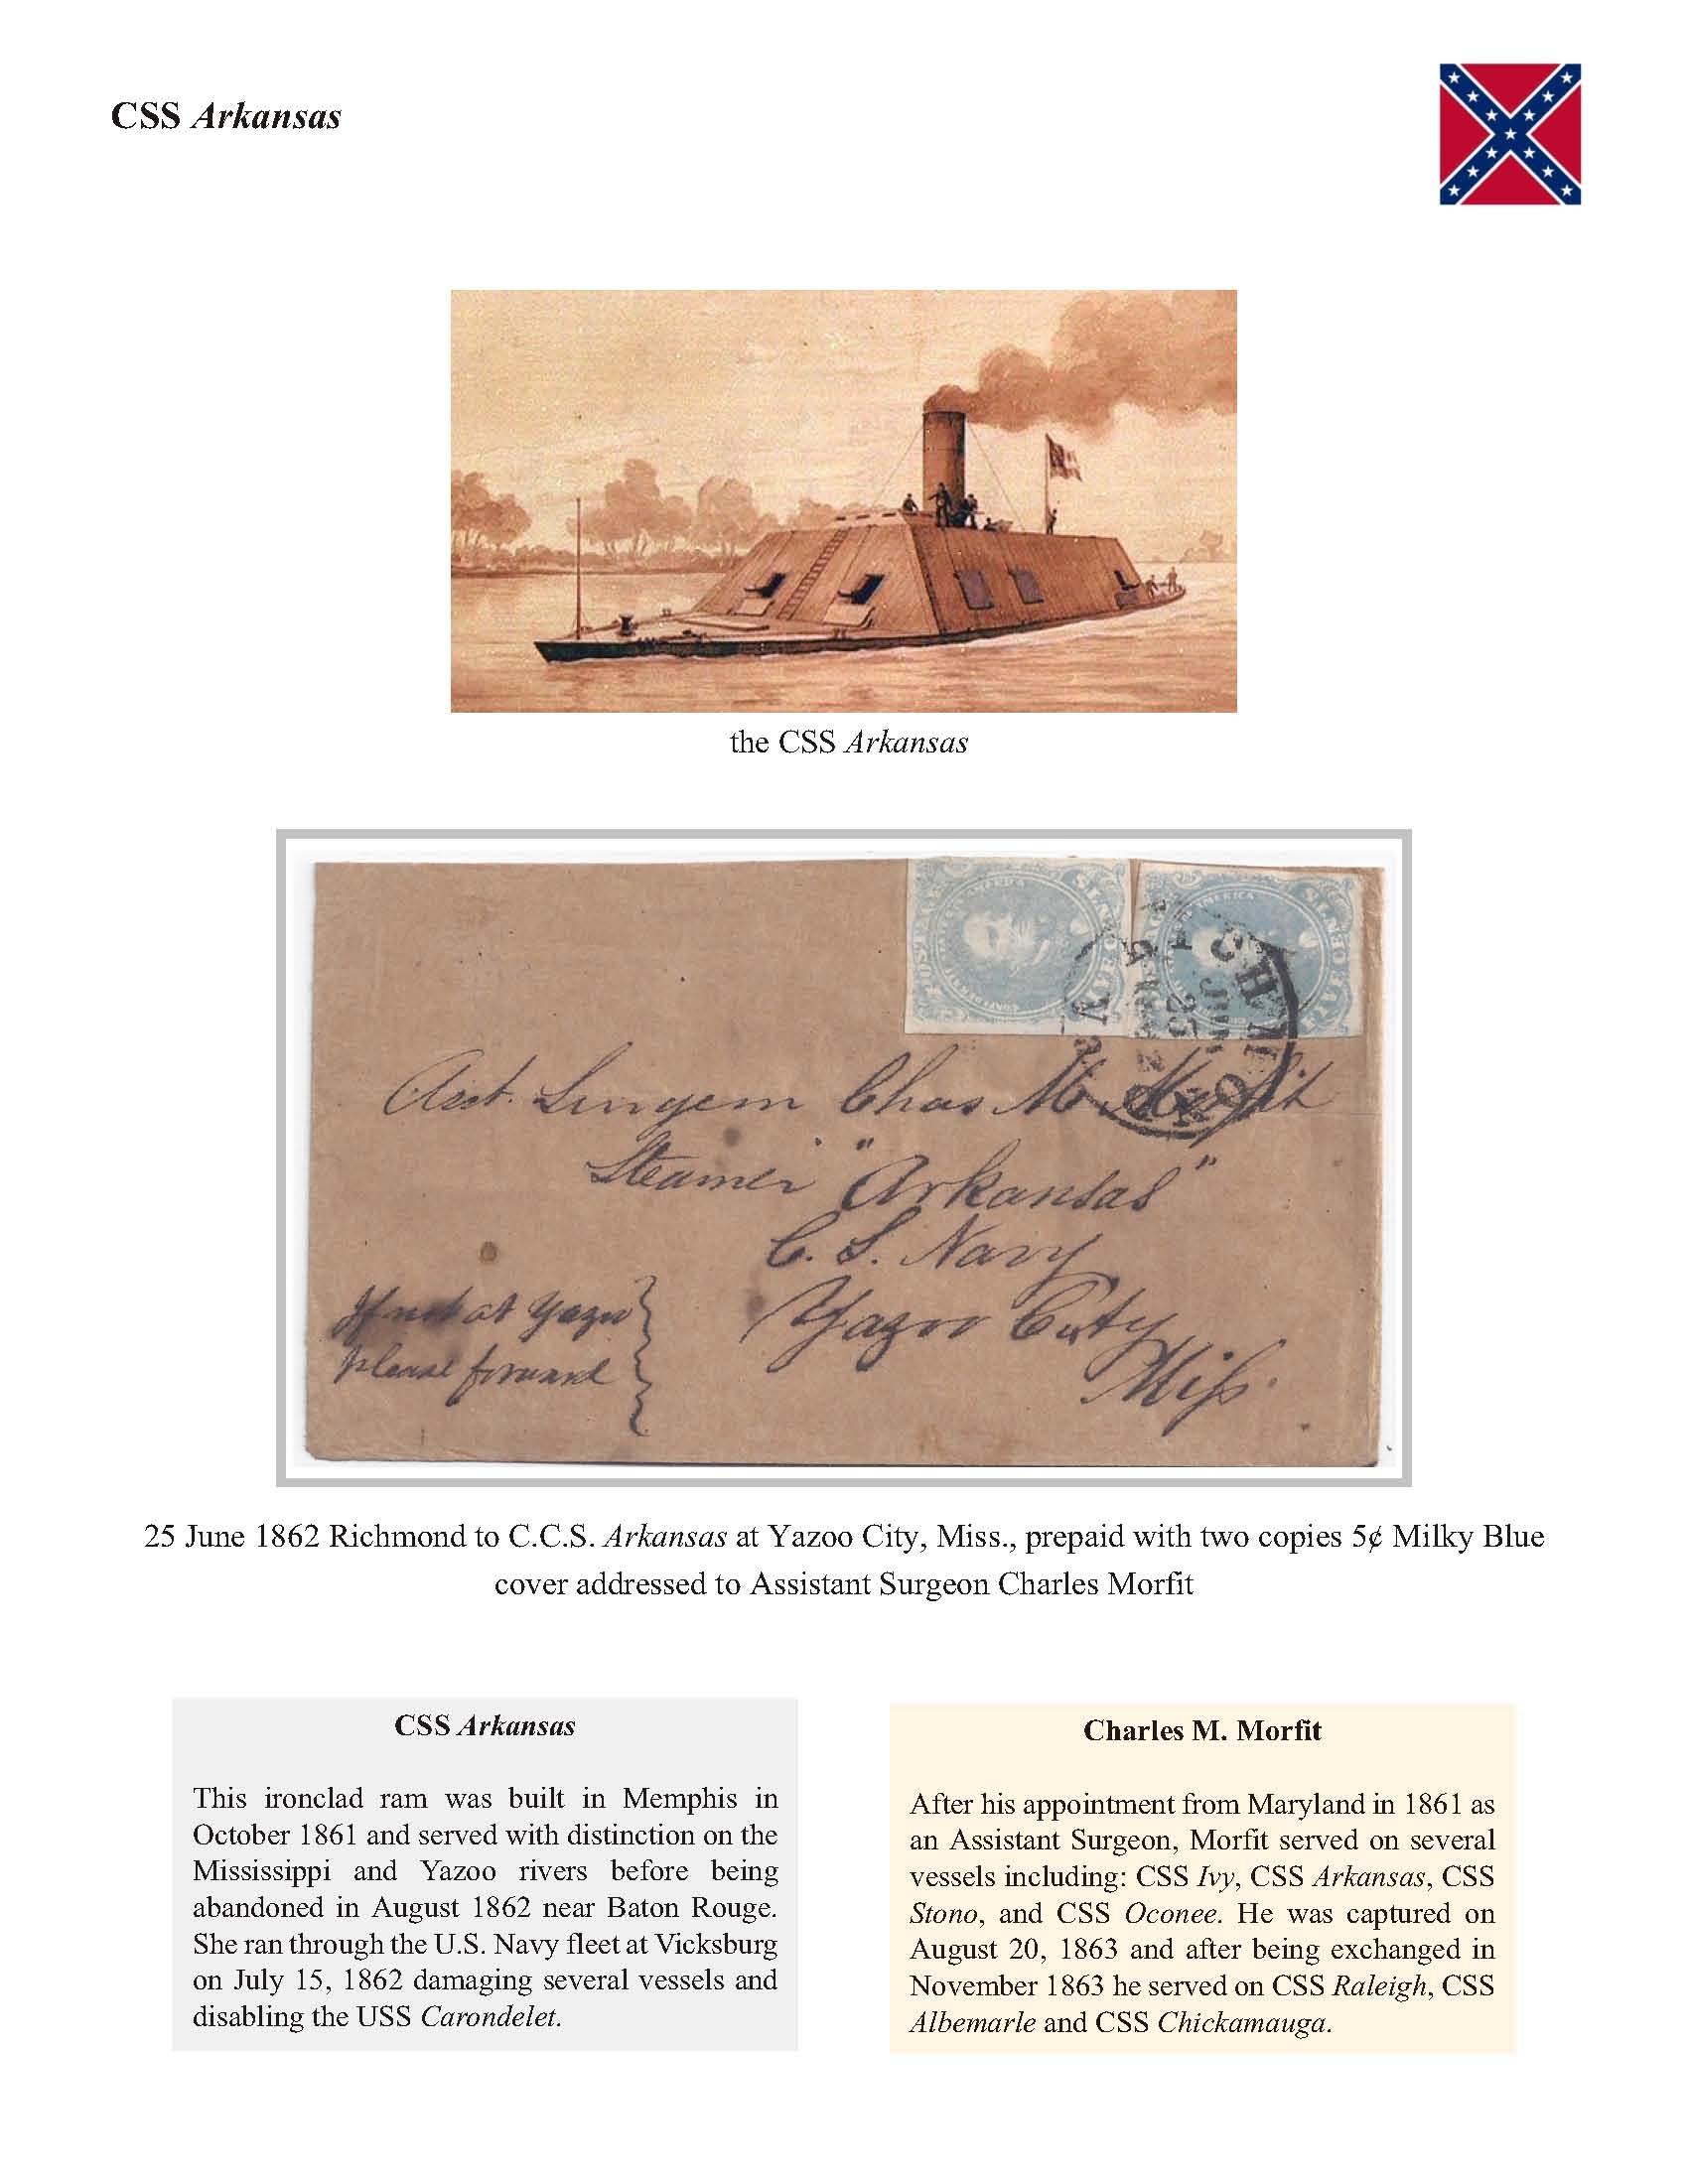 CSS Arkansas
the CSS Arkansas
POSTAGE
FIVE CENTS
AMERICA
FIVE CENTS
RICHMOND VA
JUN
25
Asst. Surgeon Chas M Morfit
Steamer "Arkansas"
C. S. Navy
Yazoo City
Miss.
If not at Yazoo
please forward
25 June 1862 Richmond to C.C.S. Arkansas at Yazoo City, Miss., prepaid with two copies 5¢ Milky Blue
cover addressed to Assistant Surgeon Charles Morfit
CSS Arkansas
This ironclad ram was built in Memphis in
October 1861 and served with distinction on the
Mississippi and Yazoo rivers before being
abandoned in August 1862 near Baton Rouge.
She ran through the U.S. Navy fleet at Vicksburg
on July 15, 1862 damaging several vessels and
disabling the USS Carondelet.
Charles M. Morfit
After his appointment from Maryland in 1861 as
an Assistant Surgeon, Morfit served on several
vessels including: CSS Ivy, CSS Arkansas, CSS
Stono, and CSS Oconee. He was captured on
August 20, 1863 and after being exchanged in
November 1863 he served on CSS Raleigh, CSS
Albemarle and CSS Chickamauga.